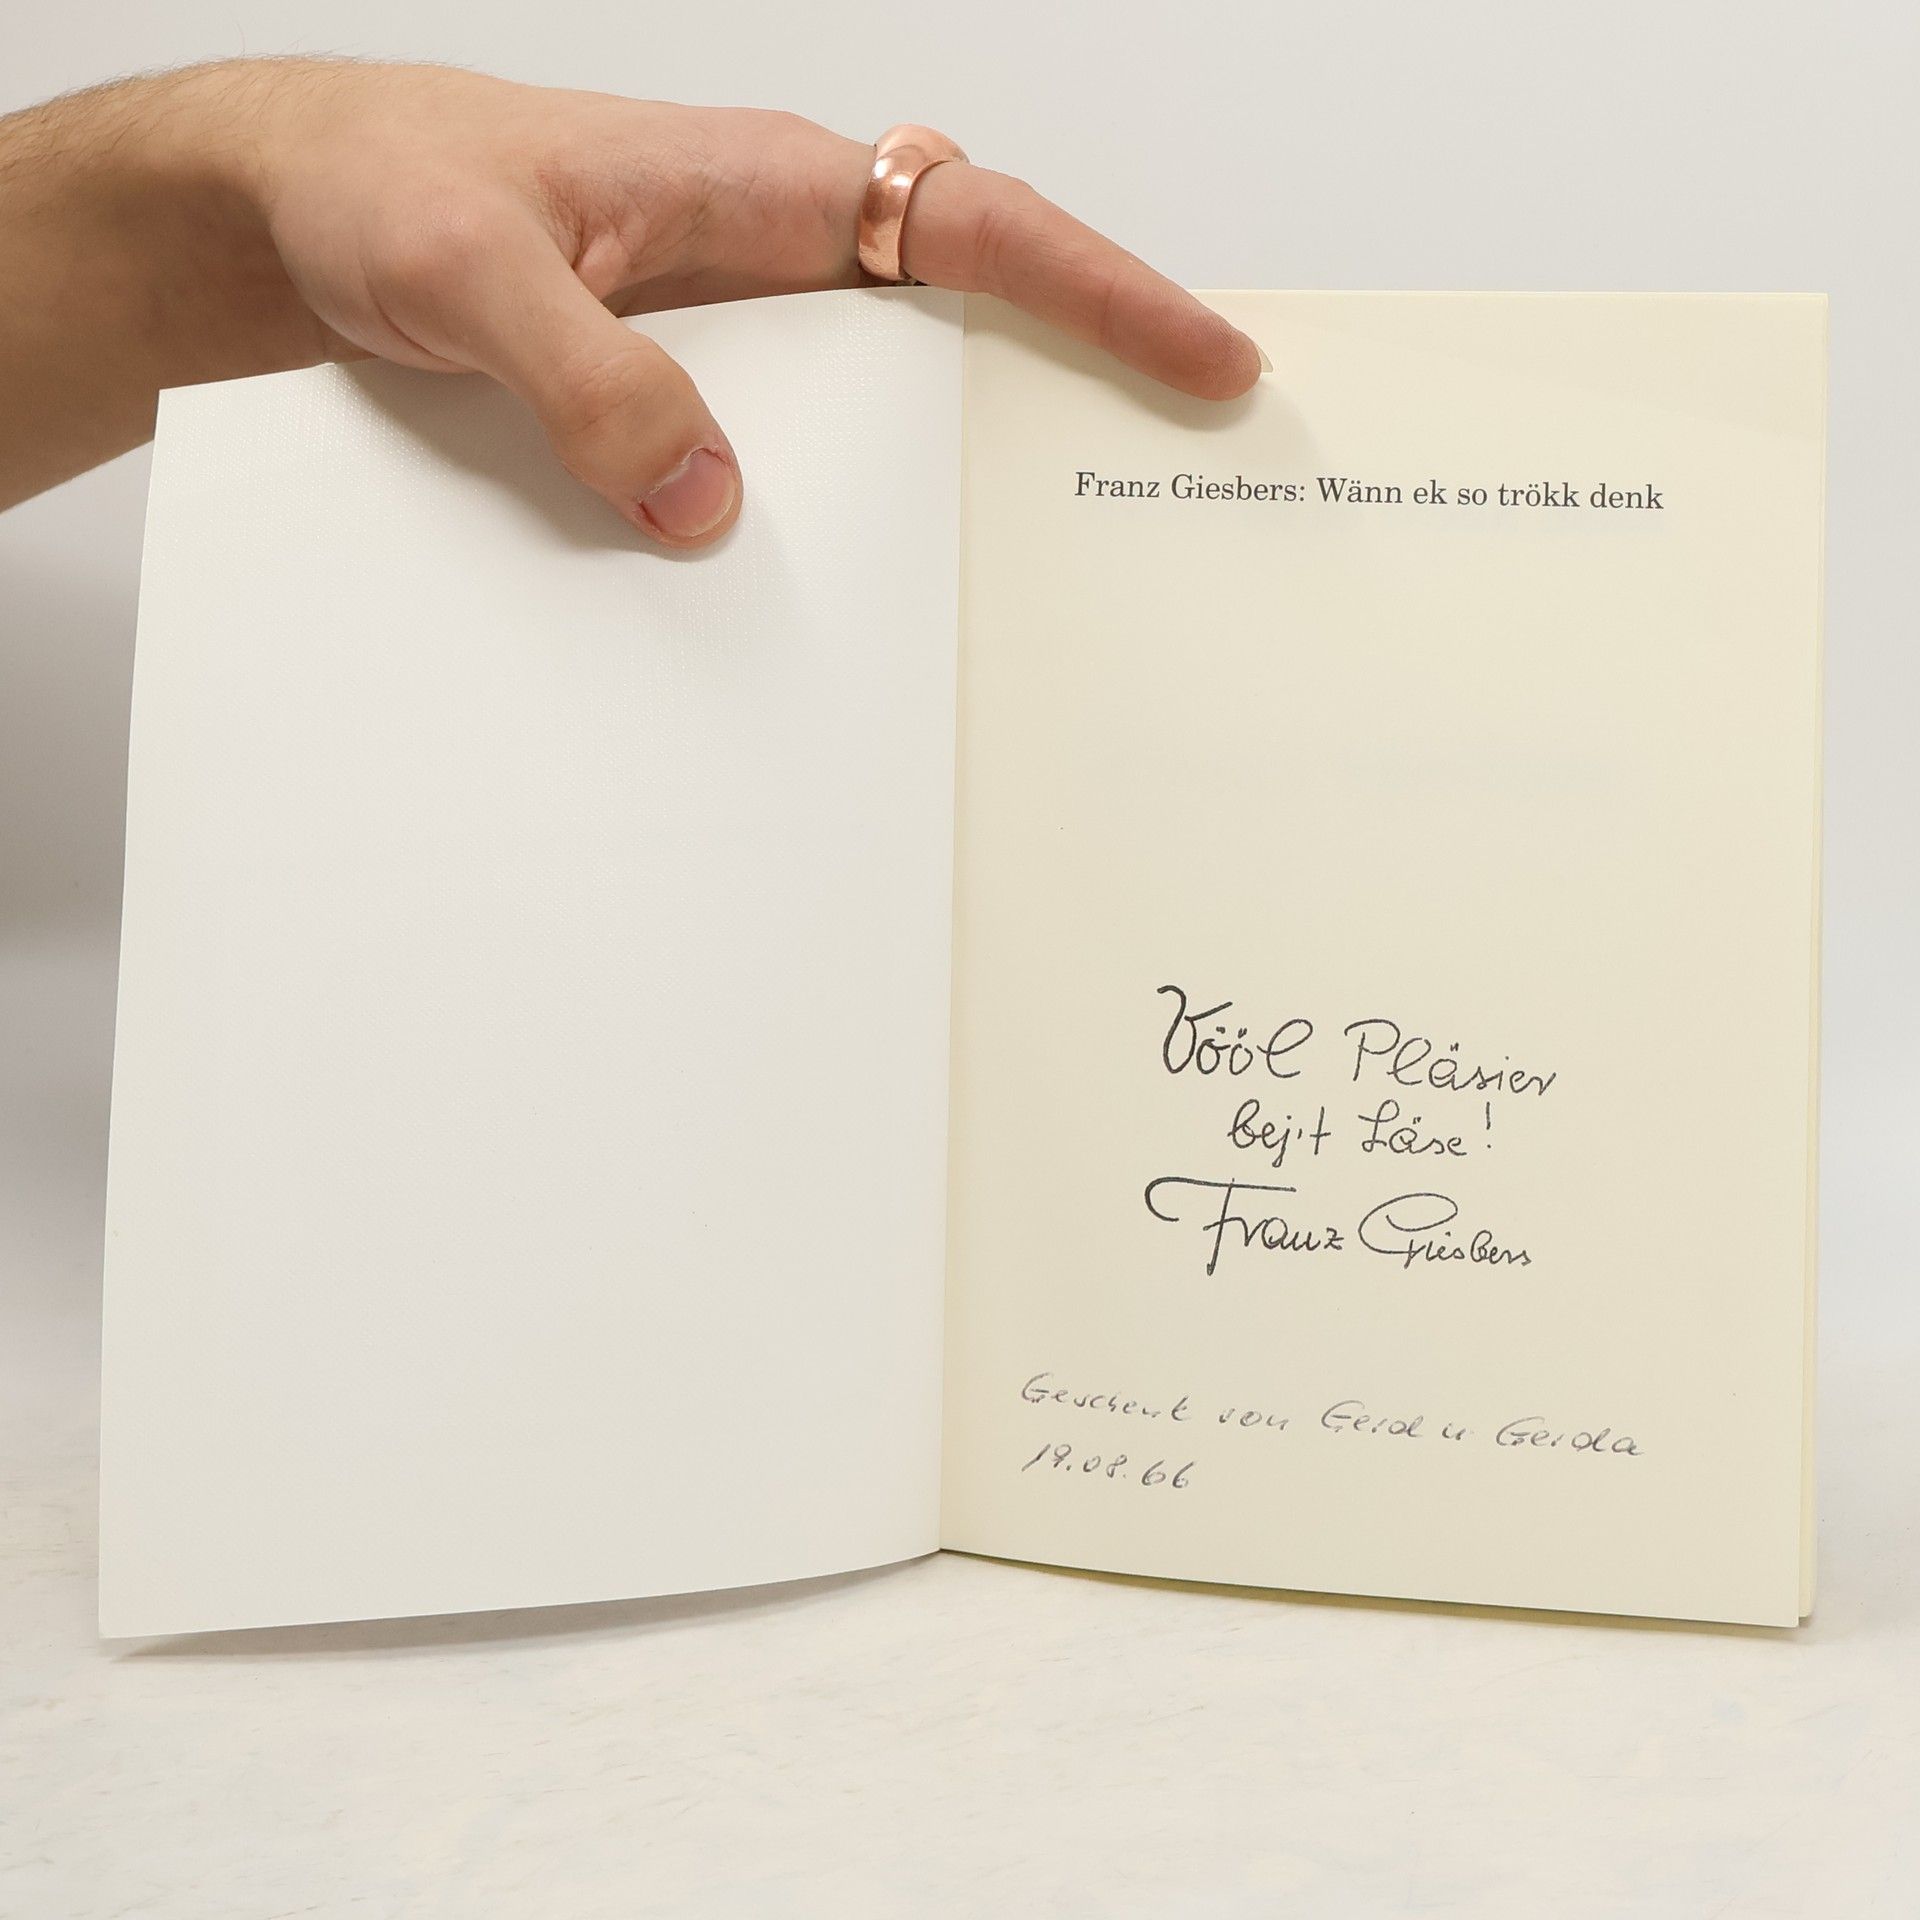 Franz Giesbers: Wänn ek so trökk denk
Vööl Pläsier
bej't Läse!
Franz Giesbers
Geschenk von Gerd u Gerda
19.08.66